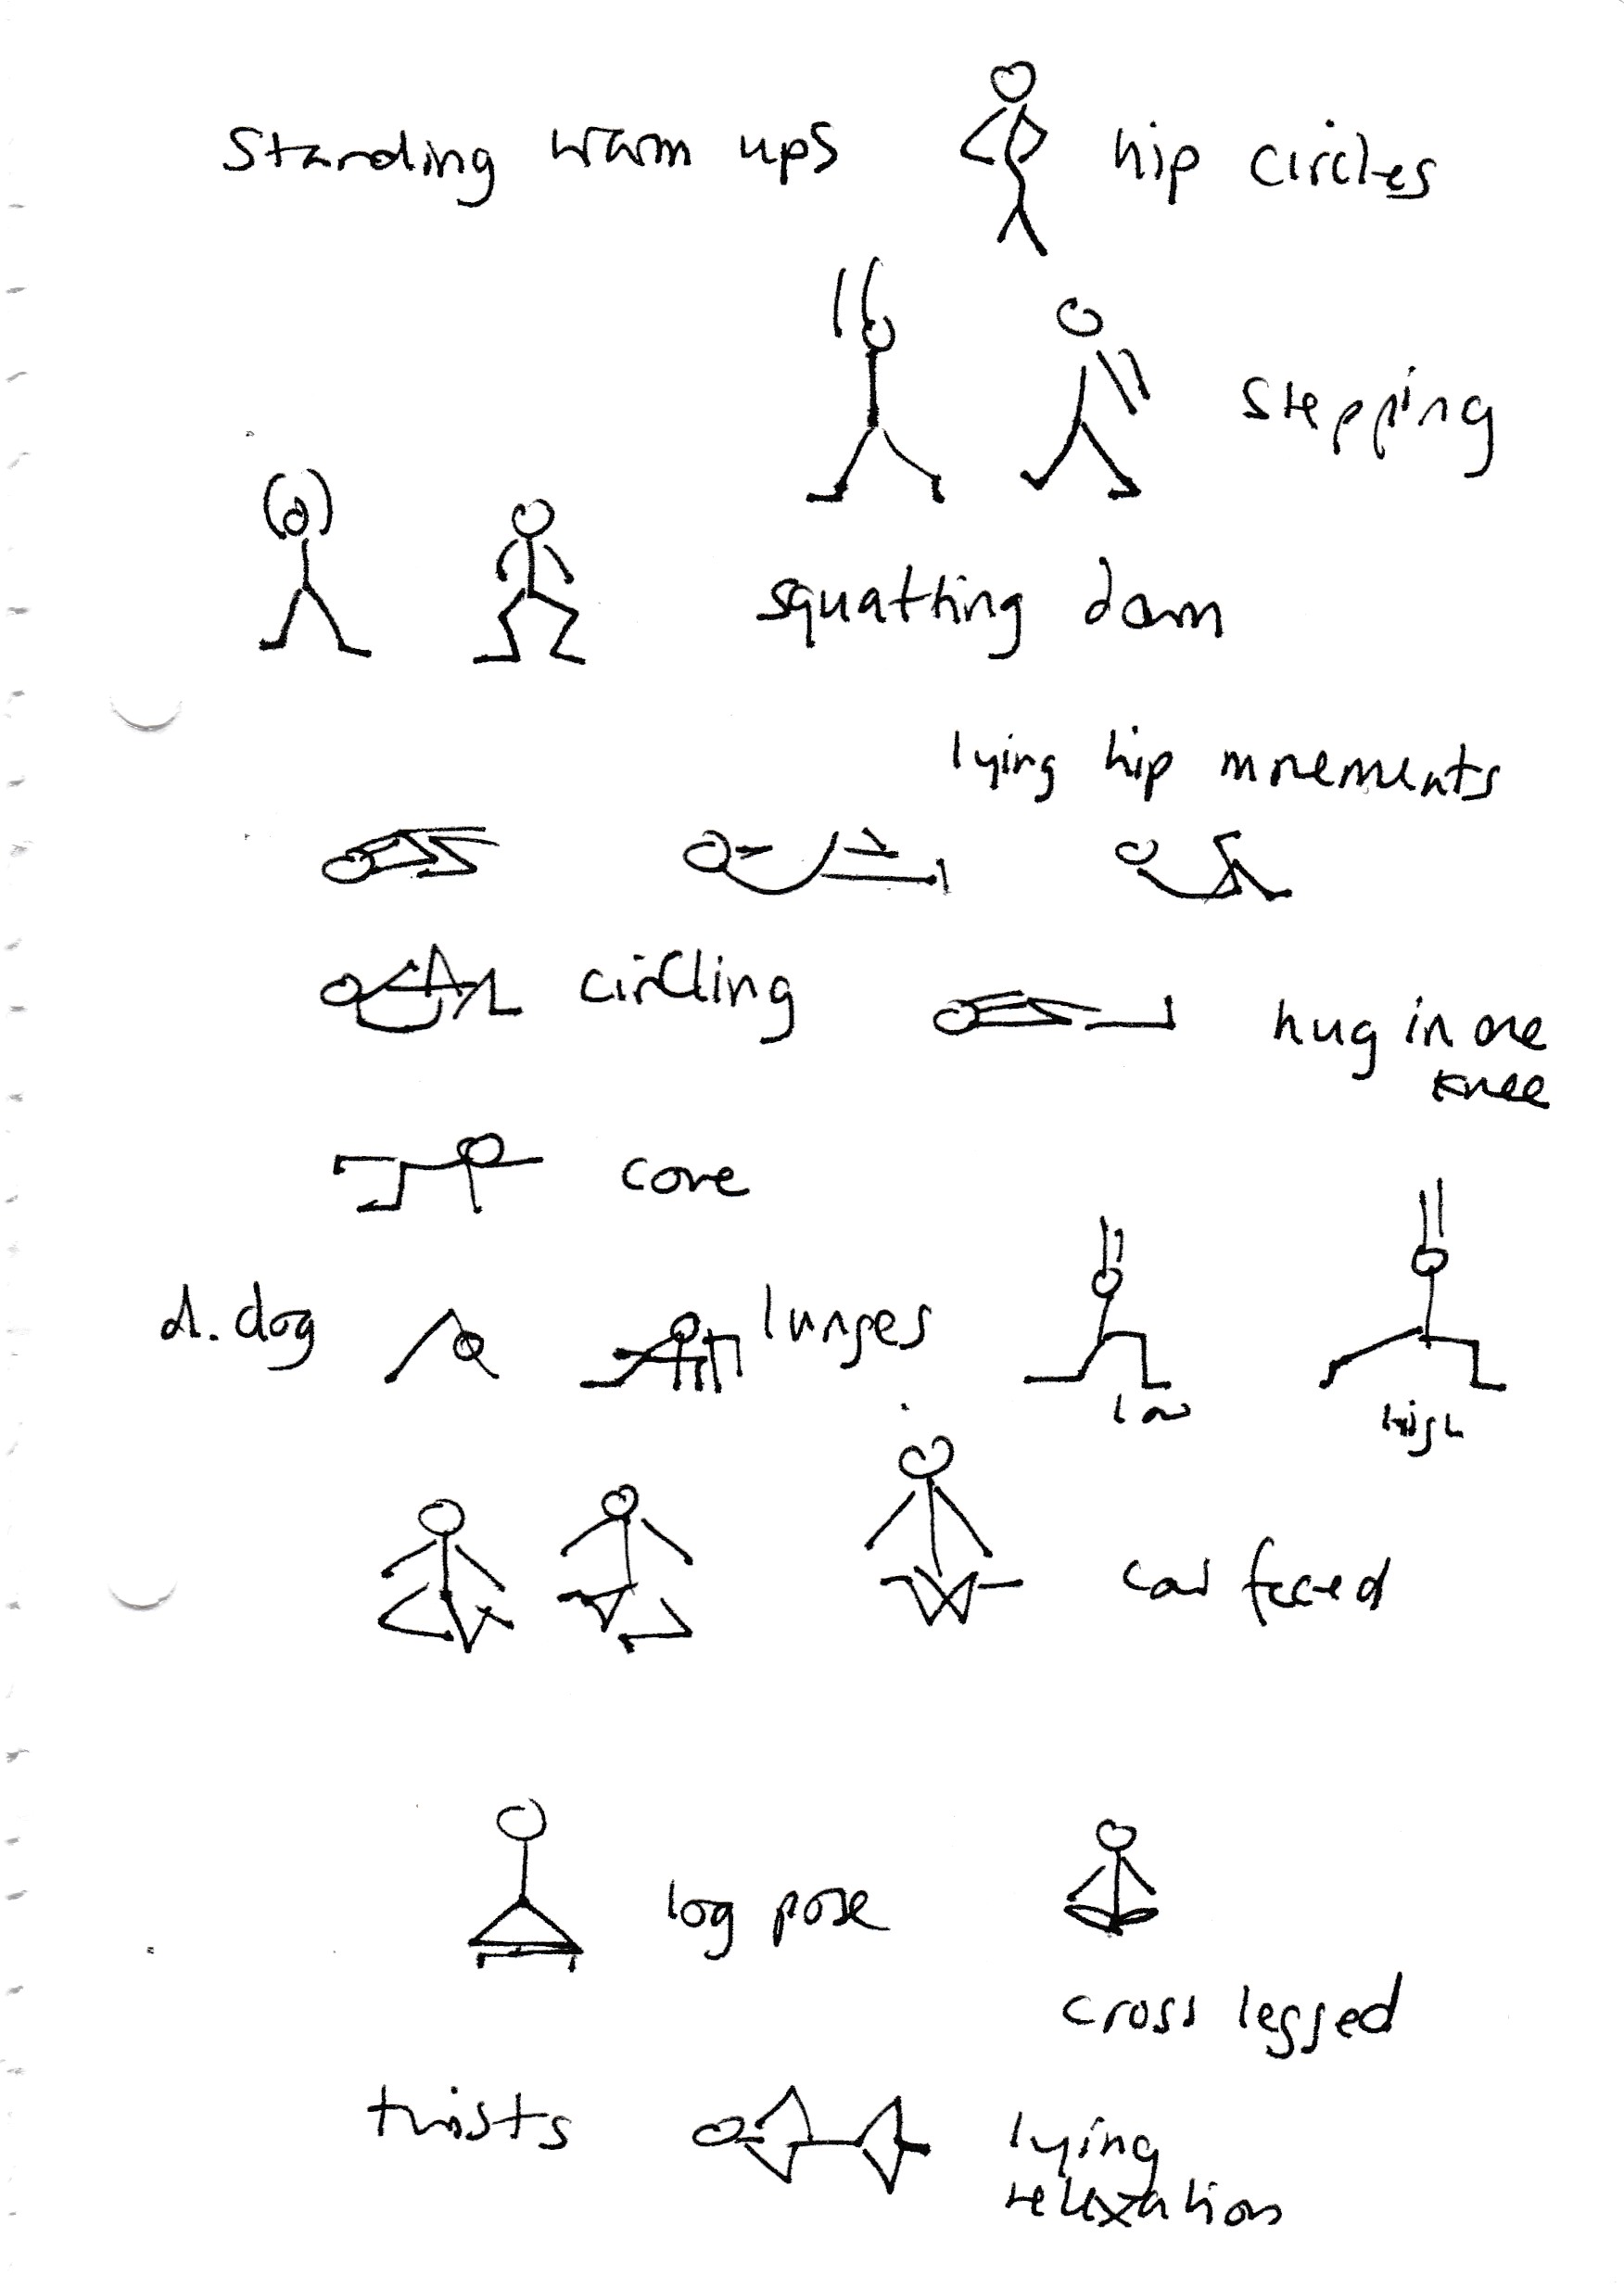 Standing warm ups hip circles
stepping
squatting down
lying hip movements
circling hug in one
knee
core
d. dog lunges
low high
cow faced
log pose
cross legged
twists lying
relaxation